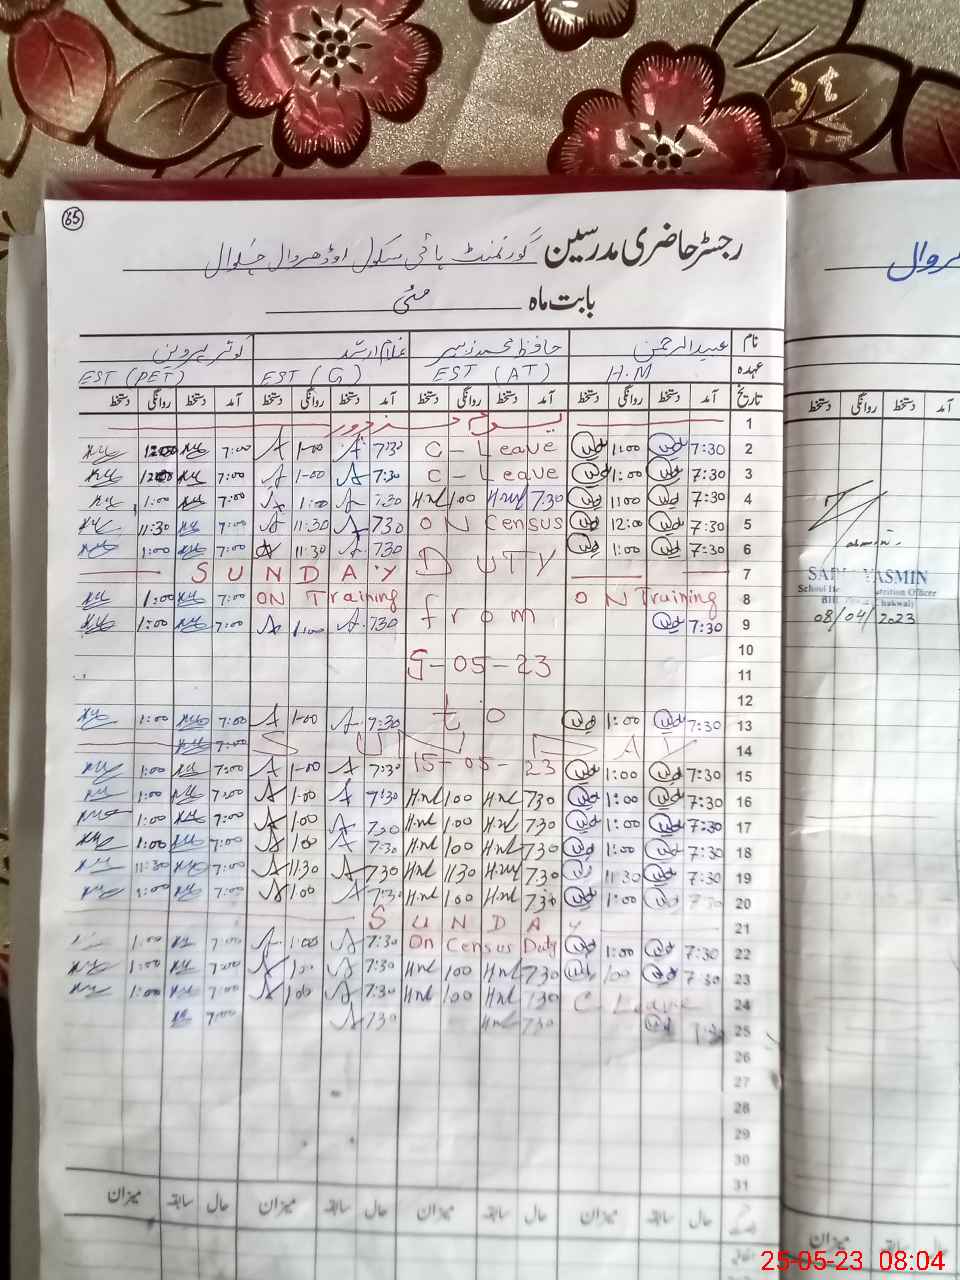 65
رجسٹر حاضری مدرسین گورنمنٹ ہائی سکول اوڈھروال چکوال
بابت ماہ مئی
نام عبید الرحمن حافظ محمد زبیر غلام ارشد کوثر پروین
عہدہ H.M EST (AT) EST (G) EST (PET)
تاریخ آمد دستخط روانگی دستخط آمد دستخط روانگی دستخط آمد دستخط روانگی دستخط آمد دستخط روانگی دستخط
1 یوم مزدور
2 7:30 1:00 C-Leave 7:30 1-00 7:00
3 7:30 1:00 C-Leave 7:30 1-00 7:00
4 7:30 1:00 730 100 7:30 1:00 7:00 1:00
5 7:30 12:00 ON Census 730 11:30 7:00 11:30
6 7:30 1:00 DUTY 730 11:30 7:00 1:00
7 SUNDAY
8 ON Training from ON Training 7:00 1:00
9 7:30 730 1:00 7:00 1:00
10 9-05-23
11
12
13 7:30 1:00 to 7:30 1-00 7:00 1:00
14 SUNDAY 7:00
15 7:30 1:00 15-05-23 7:30 1-00 7:00 1:00
16 7:30 1:00 730 100 7:30 1.00 7:00 1:00
17 7:30 1:00 730 100 7:30 1.00 7:00 1:00
18 7:30 1:00 730 100 7:30 1.00 7:00 1:00
19 7:30 11:30 7.30 1130 730 11:30 7:00 11:30
20 7:30 1:00 7.30 100 7:30 1:00 7:00 1:00
21 SUNDAY
22 7:30 1:00 On Census Duty 7:30 1:00 7:00 1:00
23 7:30 100 730 100 7:30 100 7:00 1:00
24 C Leave 730 100 7:30 100 7:00 1:00
25 7:30 730 730 7:00
26
27
28
29
30
31
حال سابقہ میزان حال سابقہ میزان حال سابقہ میزان حال سابقہ میزان
دستخط روانگی دستخط آمد
YASMIN
School Nutrition Officer
Chakwal
08/04/2023
سابقہ میزان
25-05-23 08:04